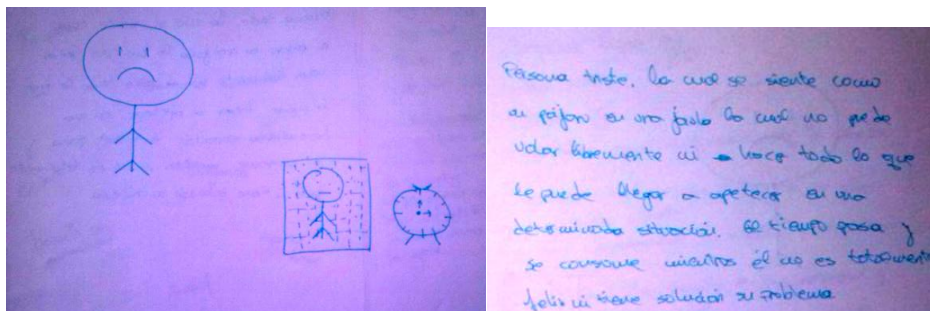 Persona triste, la cual se siente como
un pájaro en una jaula la cual no puede
volar libremente ni hacer todo lo que
le puede llegar a apetecer en una
determinada situación. El tiempo pasa y
se consume mientras él no es totalmente
feliz ni tiene solución su problema